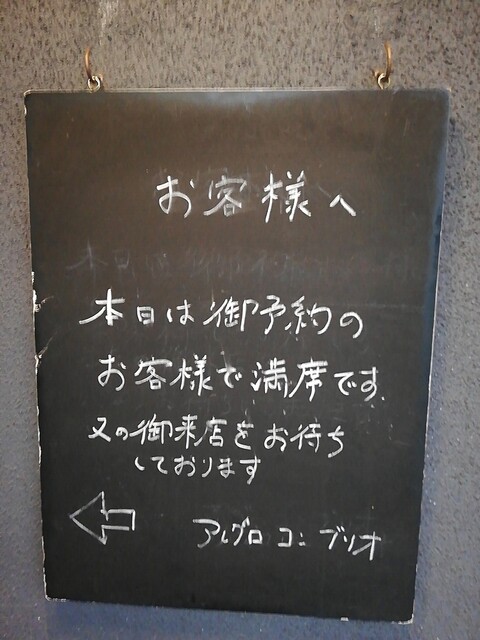 お客様へ
本日は御予約の
お客様で満席です.
又の御来店をお待ち
しております
アレグロ コン ブリオ